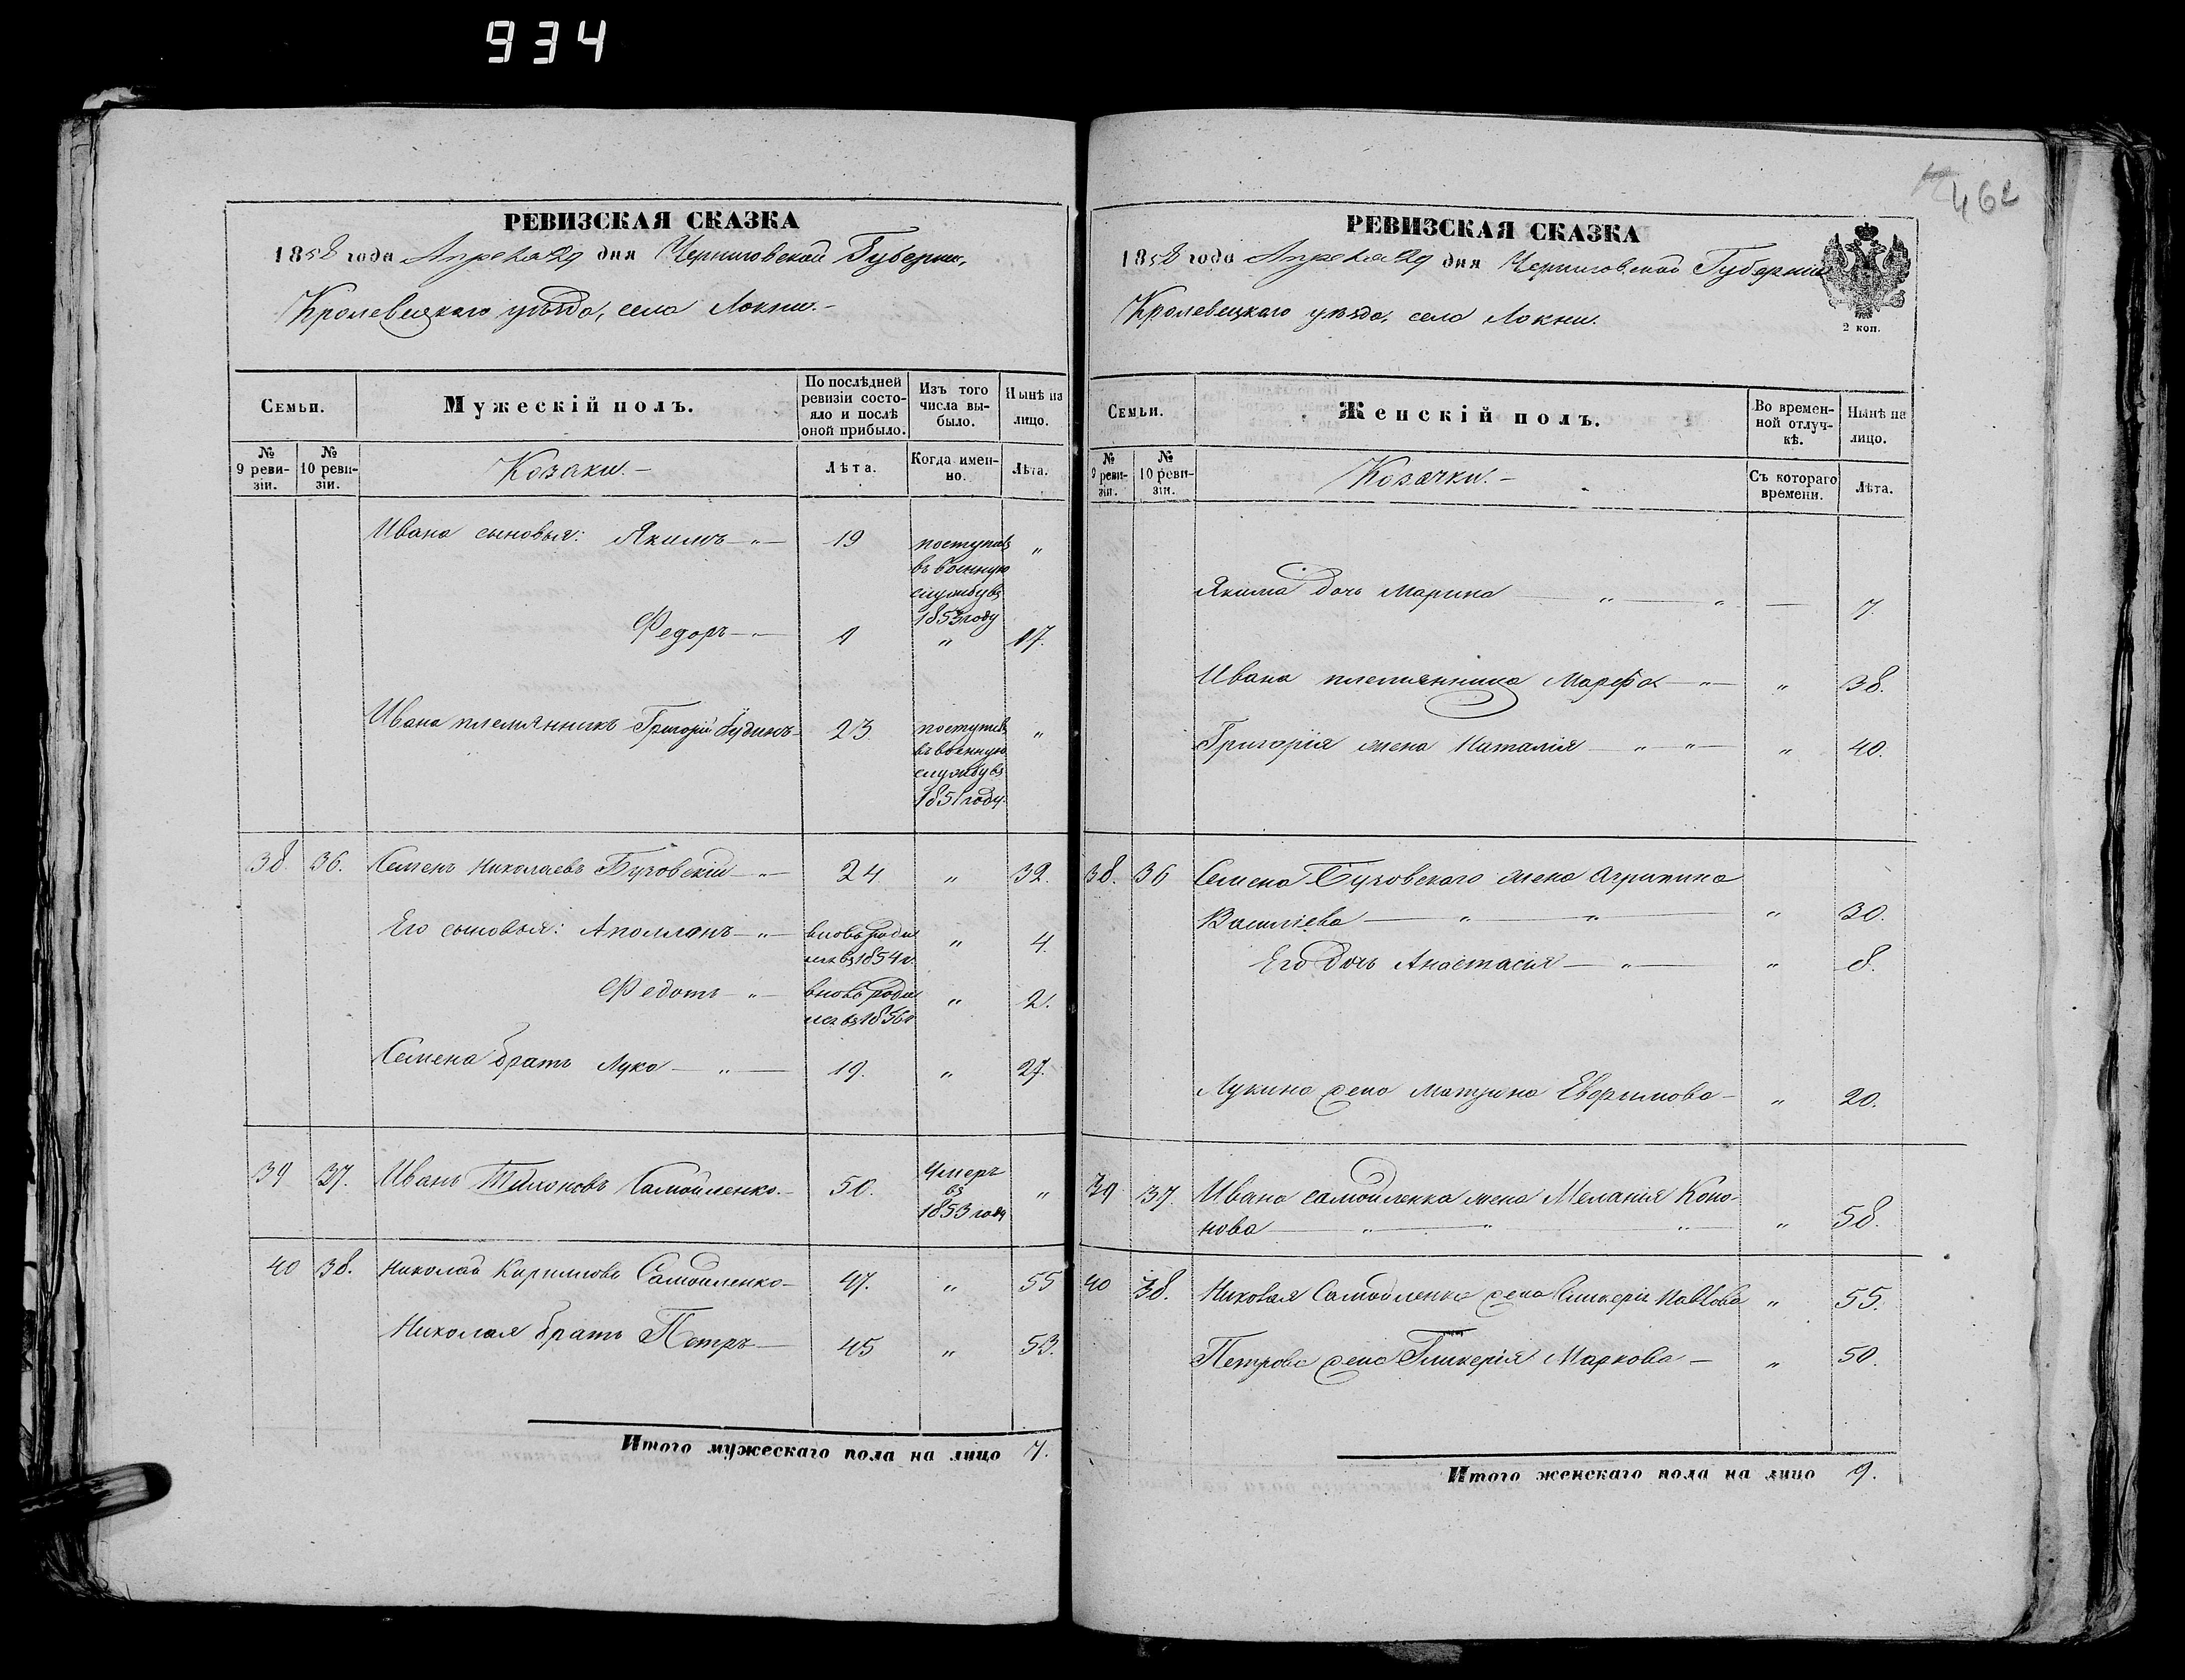 934
РЕВИЗСКАЯ СКАЗКА
1858 года Апреля 29 дня Черниговской Губернии,
Кролевецкаго уѣзда, села Локни.-
Семьи. Мужескій полъ. По послѣдней ревизіи состояло и послѣ оной прибыло. Изъ того числа выбыло. Нынѣ на лицо.
№ 9 ревизіи. № 10 ревизіи. Козаки.- Лѣта. Когда именно. Лѣта.
Ивана сыновья: Якимъ 19 поступилъ "
въ военную
службу въ
1853 году
Федоръ 9 " 17.
Ивана племянникъ Григорій 23 поступилъ "
въ военную
службу въ
1851 году.
38. 36. Семенъ Николаевъ 24 " 32.
Его сыновья: Аполлонъ вновь роди " 4.
лся въ 1854 г.
Федотъ вновь роди " 2.
лся въ 1856 г
Семена братъ Лука 19. " 27.
39 37. Иванъ Тихоновъ Самойленко.- 50. Умеръ "
въ
1853 году
40 38. Николай Кириловъ Самойленко- 47. " 55
Николая братъ Петръ- 45 " 53.
Итого мужескаго пола на лицо 7.
462
РЕВИЗСКАЯ СКАЗКА
1858 года Апреля 29 дня Черниговской Губерніи
Кролевецкаго уѣзда, села Локни.
2 коп.
Семьи. Женскій полъ. Во временной отлучкѣ. Нынѣ на лицо.
№ 9 ревизіи. № 10 ревизіи. Козачки.- Съ котораго времени. Лѣта.
Якима дочь Марина " " — 7.
Ивана племянница Марфа " " 38.
Григорія жена Наталія " " " 40.
38. 36 Семена жена Агрипина
Василіева " " " 30.
Его дочь Анастасия " " 8.
Лукина жена Матрона Евфимова- " 20.
39 37. Ивана самойленка жена Меланія Коно-
нова " " " " 58.
40 38. Николая Самойленка жена Гликерія Павлова " 55.
Петрова жена Гликерія Маркова- " 50.
Итого женскаго пола на лицо 9.